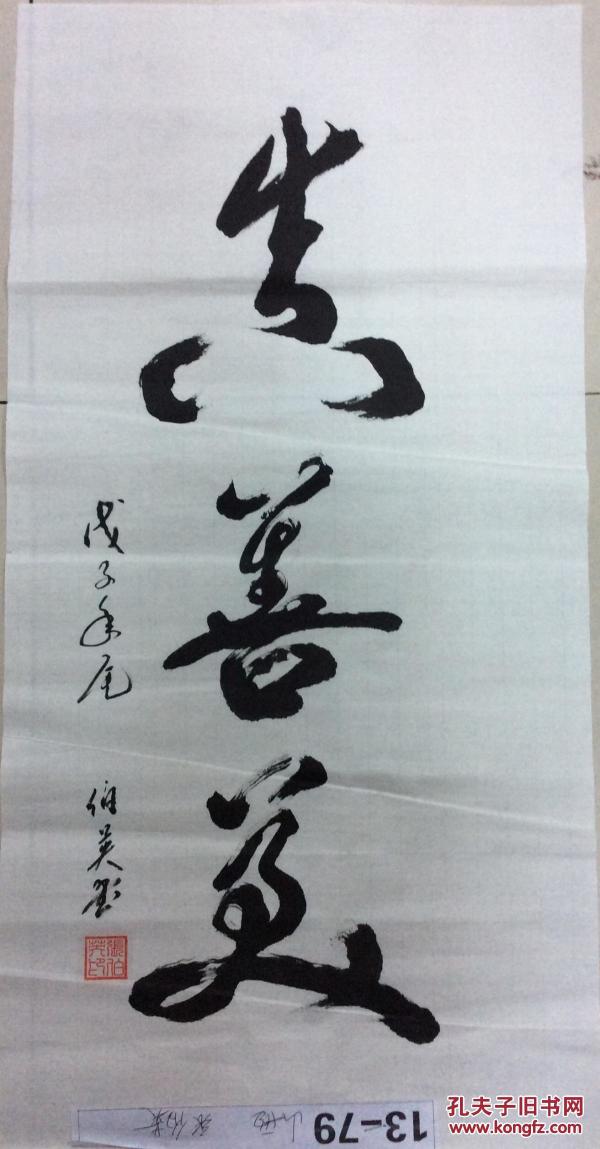 真善美
戊子年尾
伯英書
張伯英印
13-79 山西 张伯英
孔夫子旧书网
www.kongfz.com